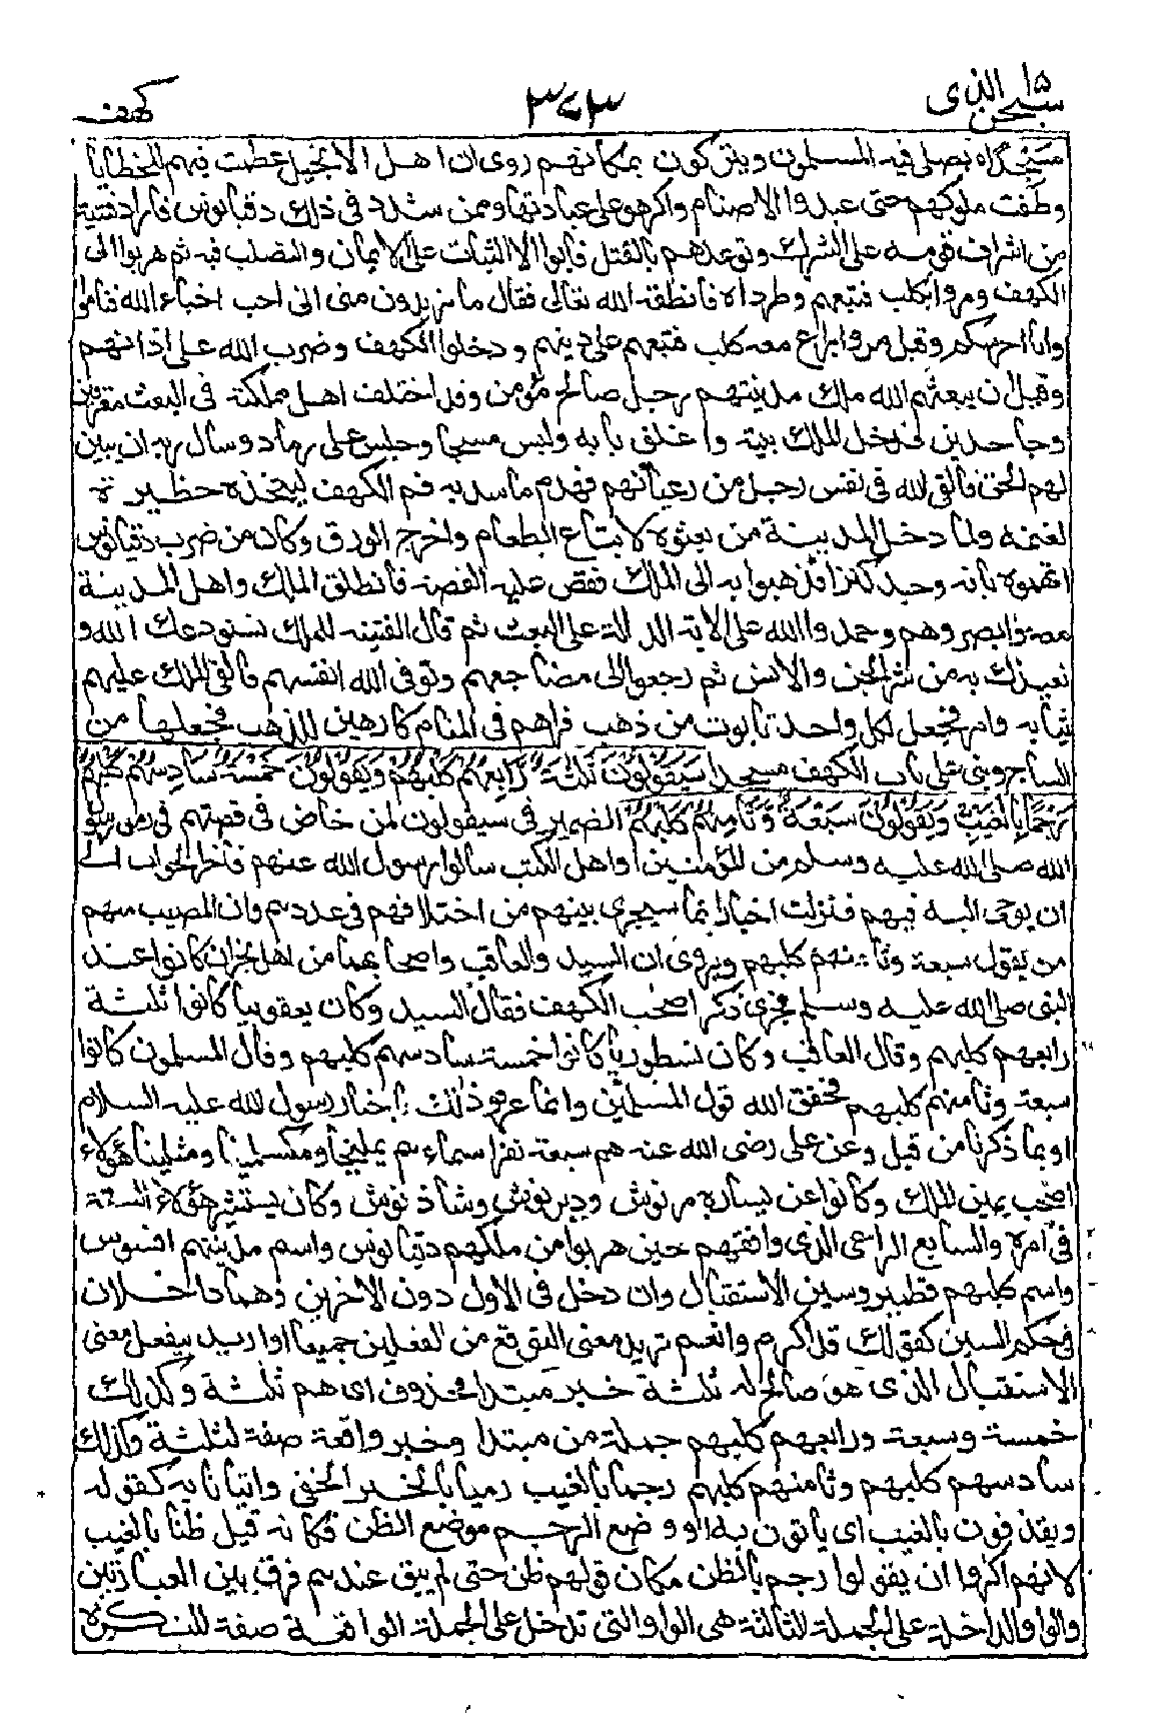 سبحن الذی ١٥
٣٧٣
كهف
مَسْجِدًا٥ يصلى فيه المسلمون ويتبركون بمكانهم روى ان اهل الانجيل عظمت فيهم الخطايا
وطغت ملوكهم حتى عبدوا الاصنام واكرهوا على عبادتها وممن شدد فى ذلك دقيانوس فاراد فتية
من اشراف قومه على الشرك وتوعدهم بالقتل فابوا الا الثبات على الايمان والتصلب فيه ثم هربوا الى
الكهف ومروا بكلب فتبعهم وطرداه فانطقه الله تعالى فقال ما تريدون منى انى احب احباء الله فناموا
وانا احرسكم وقيل مروا براع معه كلب فتبعهم على دينهم ودخلوا الكهف وضرب الله على اذانهم
وقبل ان يبعثهم الله ملك مدينتهم رجل صالح مؤمن وقد اختلف اهل مملكته فى البعث معترفين
وجاحدين فدخل الملك بيته واغلق بابه ولبس مسحا وجلس على رماد وسأل ربه ان يبين
لهم الحق فالقى الله فى نفس رجل من رعيانهم فهدم ما سد به فم الكهف ليتخذه حظيرة
لغنمه ولما دخل المدينة من بعثوه لابتياع الطعام واخرج الورق وكان من ضرب دقيانوس
اتهموه بانه وجد كنزا فذهبوا به الى الملك فقص عليه القصة فانطلق الملك واهل المدينة
معه وابصروهم وحمدوا الله على الاية الدالة على البعث ثم قال الفتية للملك نستودعك الله و
نعيذك به من شر الجن والانس ثم رجعوا الى مضاجعهم وتوفى الله انفسهم فالقى الملك عليهم
ثيابه وامر فجعل لكل واحد تابوت من ذهب فراهم فى المنام كارهين للذهب فجعلها من
الساج وبنى على باب الكهف مسجدا سَيَقُوْلُوْنَ ثَلٰثَةٌ رَّابِعُهُمْ كَلْبُهُمْ وَيَقُوْلُوْنَ خَمْسَةٌ سَادِسُهُمْ كَلْبُهُمْ
رَجْمًا بِالْغَيْبِ وَيَقُوْلُوْنَ سَبْعَةٌ وَّثَامِنُهُمْ كَلْبُهُمْ الضمير فى سيقولون لمن خاض فى قصتهم فى زمن رسول
الله صلى الله عليه وسلم من المؤمنين واهل الكتب سالوا رسول الله عنهم فاخر الجواب الى
ان يوحى اليه فيهم فنزلت اخبارا بما سيجرى بينهم من اختلافهم فى عددهم وان المصيب منهم
من يقول سبعة وثامنهم كلبهم ويروى ان السيد والعاقب واصحابهما من اهل نجران كانوا عند
النبى صلى الله عليه وسلم فجرى ذكر اصحب الكهف فقال السيد وكان يعقوبيا كانوا ثلثة
رابعهم كلبهم وقال العاقب وكان نسطوريا كانوا خمسة سادسهم كلبهم وقال المسلمون كانوا
سبعة وثامنهم كلبهم فحقق الله قول المسلمين وانما عرفوا ذلك باخبار رسول الله عليه السلام
او بما ذكرنا من قبل وعن على رضى الله عنه هم سبعة نفر اسماءهم يمليخا ومكسلمينا ومثلينا هؤلاء
اصحب يمين الملك وكانوا عن يساره مرنوش ودبرنوش وشاذنوش وكان يستشير هؤلاء الستة
فى امره والسابع الراعى الذى وافقهم حين هربوا من ملكهم دقيانوس واسم مدينتهم افسوس
واسم كلبهم قطمير وسين الاستقبال وان دخل فى الاول دون الاخرين وهما داخلان
فى حكم السين كقولك قد اكرم وانعم تريد معنى التوقع من الفعلين جميعا او اريد بيفعل معنى
الاستقبال الذى هو صالح له ثلثة خبر مبتدا محذوف اى هم ثلثة وكذلك
خمسة وسبعة ورابعهم كلبهم جملة من مبتدا وخبر واقعة صفة لثلثة وكذلك
سادسهم كلبهم وثامنهم كلبهم رجما بالغيب رميا بالخبر الخفى واتيانا به كقوله
ويقذفون بالغيب اى ياتون به او وضع الرجم موضع الظن فكانه قيل ظنا بالغيب
لانهم اكثروا ان يقولوا رجم بالظن مكان قولهم ظن حتى لم يبق عندهم فرق بين العبارتين
والواو الداخلة على الجملة الثالثة هى الواو التى تدخل على الجملة الواقعة صفة للنكرة